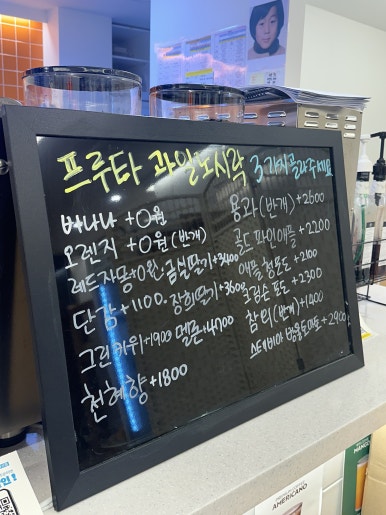 프루타 과일도시락 3가지골라주세요
바나나 +0원
오렌지 +0원 (반개)
레드자몽+0원 · 금실딸기+3400
단감+1100. 장희딸기+3600
그린키위+1900 멜론+4700
천혜향+1800
용과(반개) +2600
골드파인애플 +2200
애플청포도+2100
크림슨포도+2300
참외(반개)+1400
스테비아 방울토마토+2900
AMERICANO
MANGO